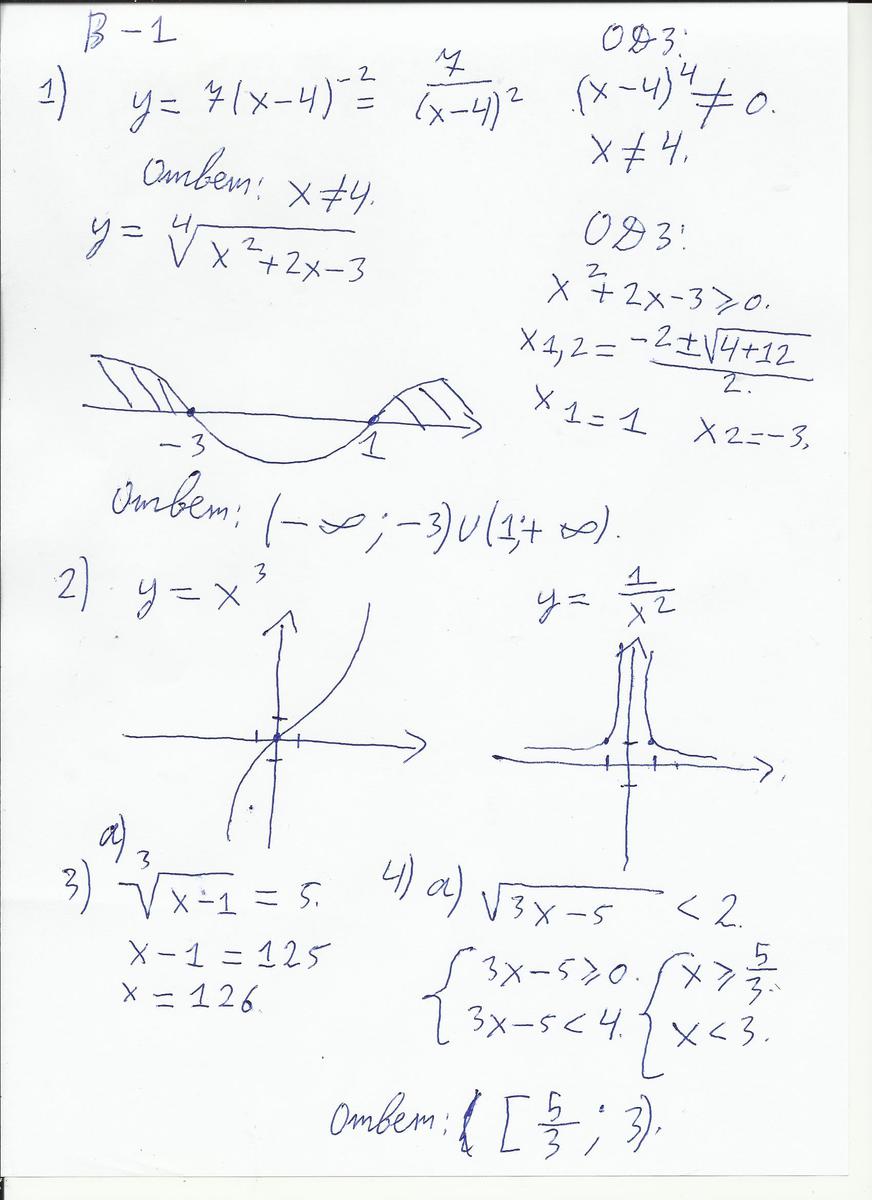 В - 1
1) y = 7(x-4)⁻² = 7/(x-4)²
ОДЗ:
(x-4)⁴ ≠ 0.
x ≠ 4.
Ответ: x ≠ 4.
y = ⁴√(x²+2x-3)
ОДЗ:
x²+2x-3 ≥ 0.
x1,2 = (-2±√(4+12))/2.
x1 = 1 x2 = -3,
-3 1
Ответ: (-∞; -3)∪(1;+∞).
2) y = x³ y = 1/x²
3) а) ³√(x-1) = 5.
x-1 = 125
x = 126.
4) а) √(3x-5) < 2.
{ 3x-5 ≥ 0. { x ≥ 5/3.
3x-5 < 4. x < 3.
Ответ: [5/3; 3).